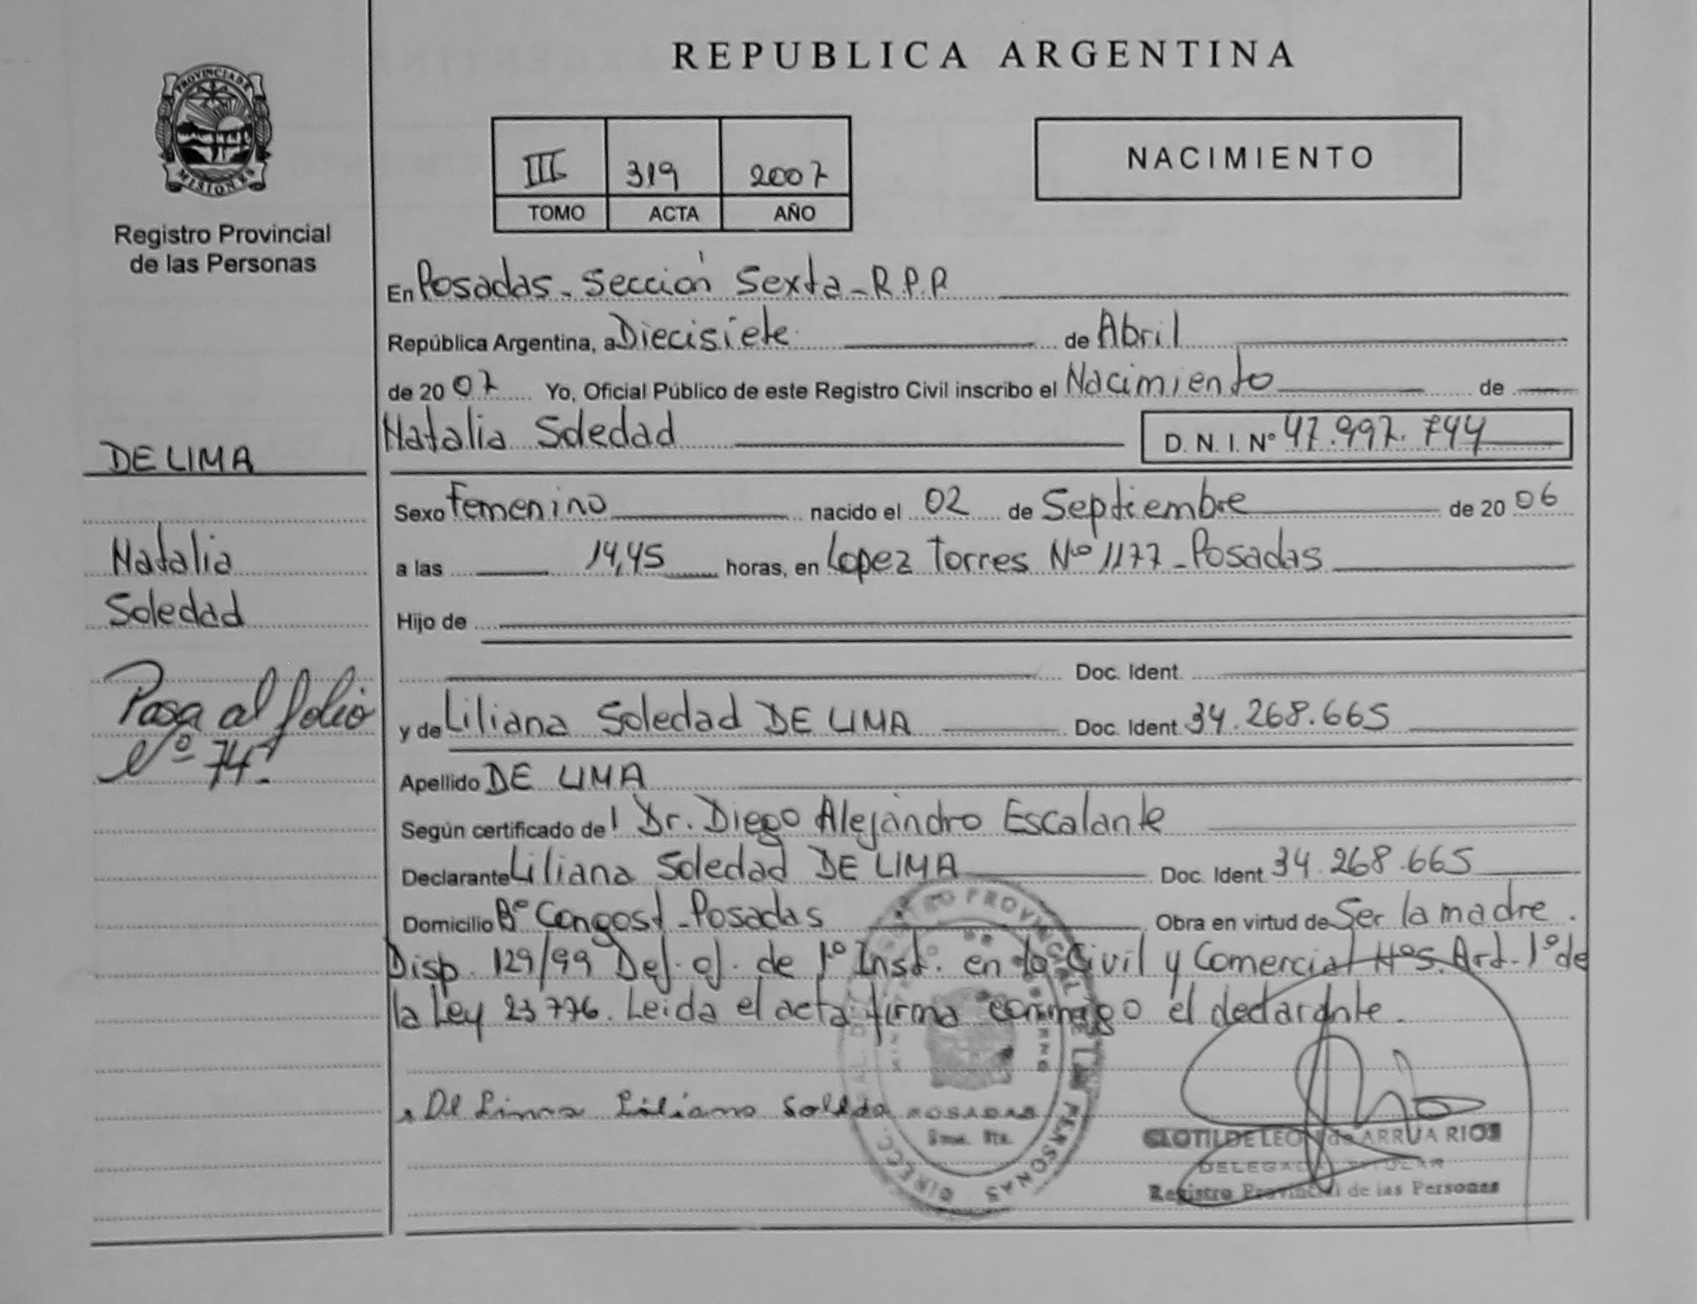 REPUBLICA ARGENTINA
PROVINCIA DE
MISIONES
Registro Provincial
de las Personas
III 319 2007
TOMO ACTA AÑO
NACIMIENTO
En Posadas - Sección Sexta - R.P.P
República Argentina, a Diecisiete de Abril
de 2007 Yo, Oficial Público de este Registro Civil inscribo el Nacimiento de
Natalia Soledad D. N. I. Nº 47.997.744
DE LIMA
Sexo Femenino nacido el 02 de Septiembre de 2006
Natalia
a las 14,45 horas, en Lopez Torres Nº 1177 - Posadas
Soledad
Hijo de
Doc. Ident.
Pasa al folio
Nº 74
y de Liliana Soledad DE LIMA Doc. Ident. 34.268.665
Apellido DE LIMA
Según certificado del Dr. Diego Alejandro Escalante
Declarante Liliana Soledad DE LIMA Doc. Ident. 34.268.665
Domicilio Bº Congost - Posadas Obra en virtud de Ser la madre.
Disp. 129/99 Def. of. de 1º Inst. en lo Civil y Comercial Art. 1º de
la Ley 23776. Leida el acta firma conmigo el declarante.
De Lima Liliana Soleda
POSADAS
CLOTILDE LEON de ARRUA RIOS
DELEGADA TITULAR
Registro Provincial de las Personas